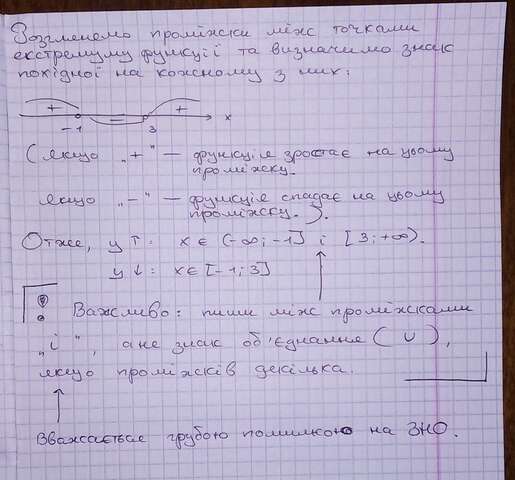 Розглянемо проміжки між точками
екстремуму функції та визначимо знак
похідної на кожному з них:
+ − + x
−1 3
(якщо „+" — функція зростає на цьому
проміжку.
якщо „−" — функція спадає на цьому
проміжку.).
Отже, y↑: x ∈ (−∞; −1] і [3; +∞).
y↓: x ∈ [−1; 3]
! Важливо: пиши між проміжками
„і", а не знак об'єднання (∪),
якщо проміжків декілька.
Вважається грубою помилкою на ЗНО.